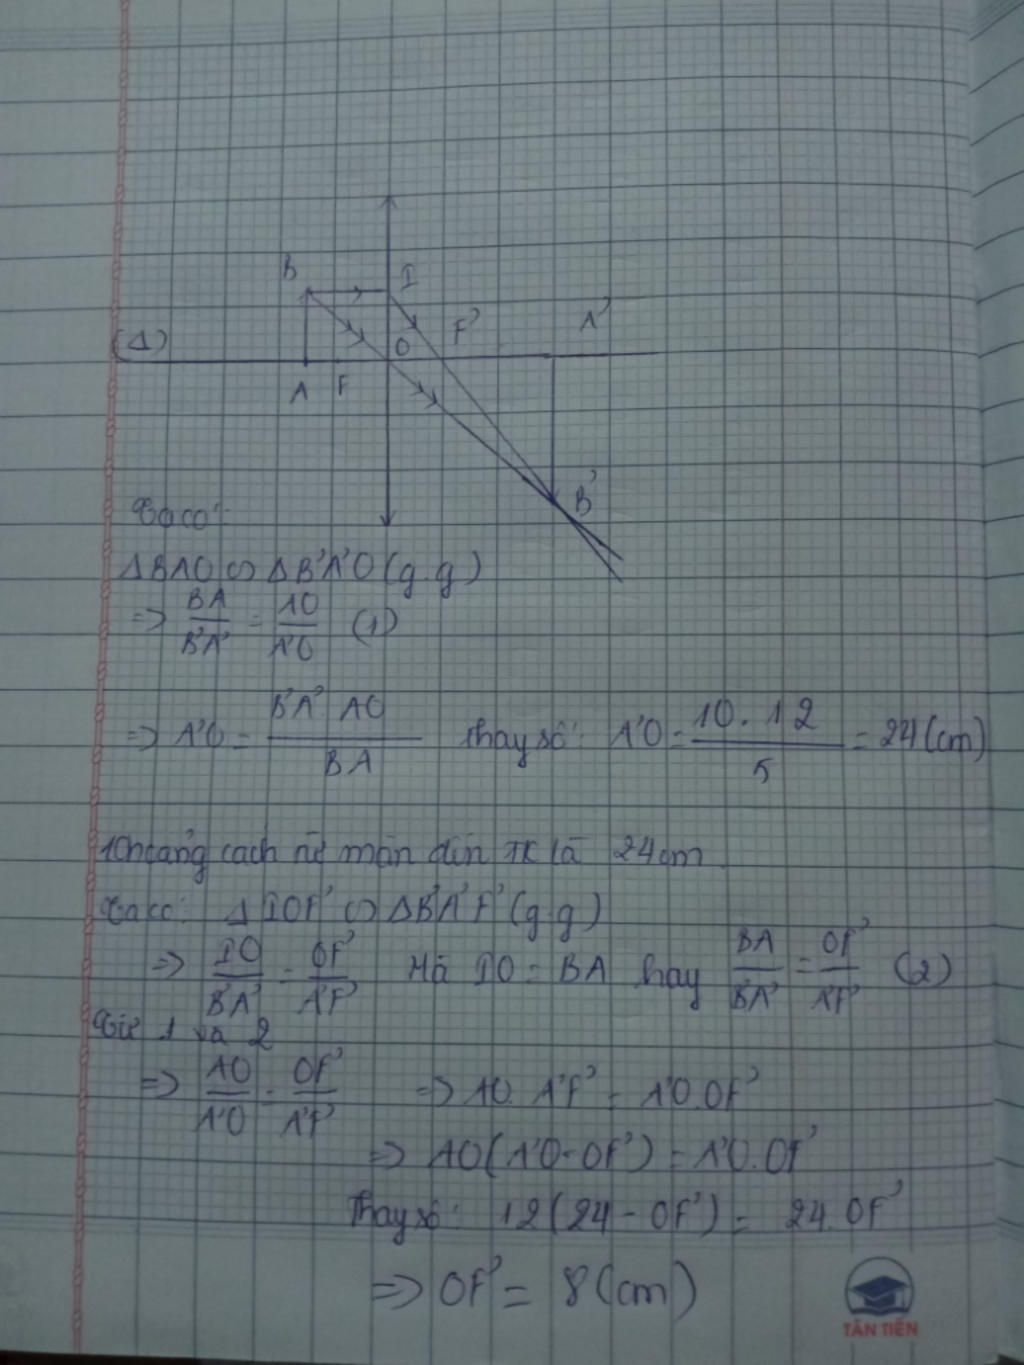 B I
(Δ) O F' A'
A F
B'
Ta có:
ΔBAO ∽ ΔB'A'O (g.g)
=> BA/B'A' = AO/A'O (1)
=> A'O = B'A'.AO/BA thay số: A'O = 10.12/5 = 24 (cm)
Khoảng cách từ màn đến TK là 24cm
Ta có: ΔIOF' ∽ ΔB'A'F' (g.g)
=> IO/B'A' = OF'/A'F' Mà IO = BA hay BA/B'A' = OF'/A'F' (2)
Từ 1 và 2
=> AO/A'O = OF'/A'F' => AO.A'F' = A'O.OF'
=> AO(A'O-OF') = A'O.OF'
Thay số: 12(24-OF') = 24.OF'
=> OF' = 8 (cm)
TÂN TIẾN